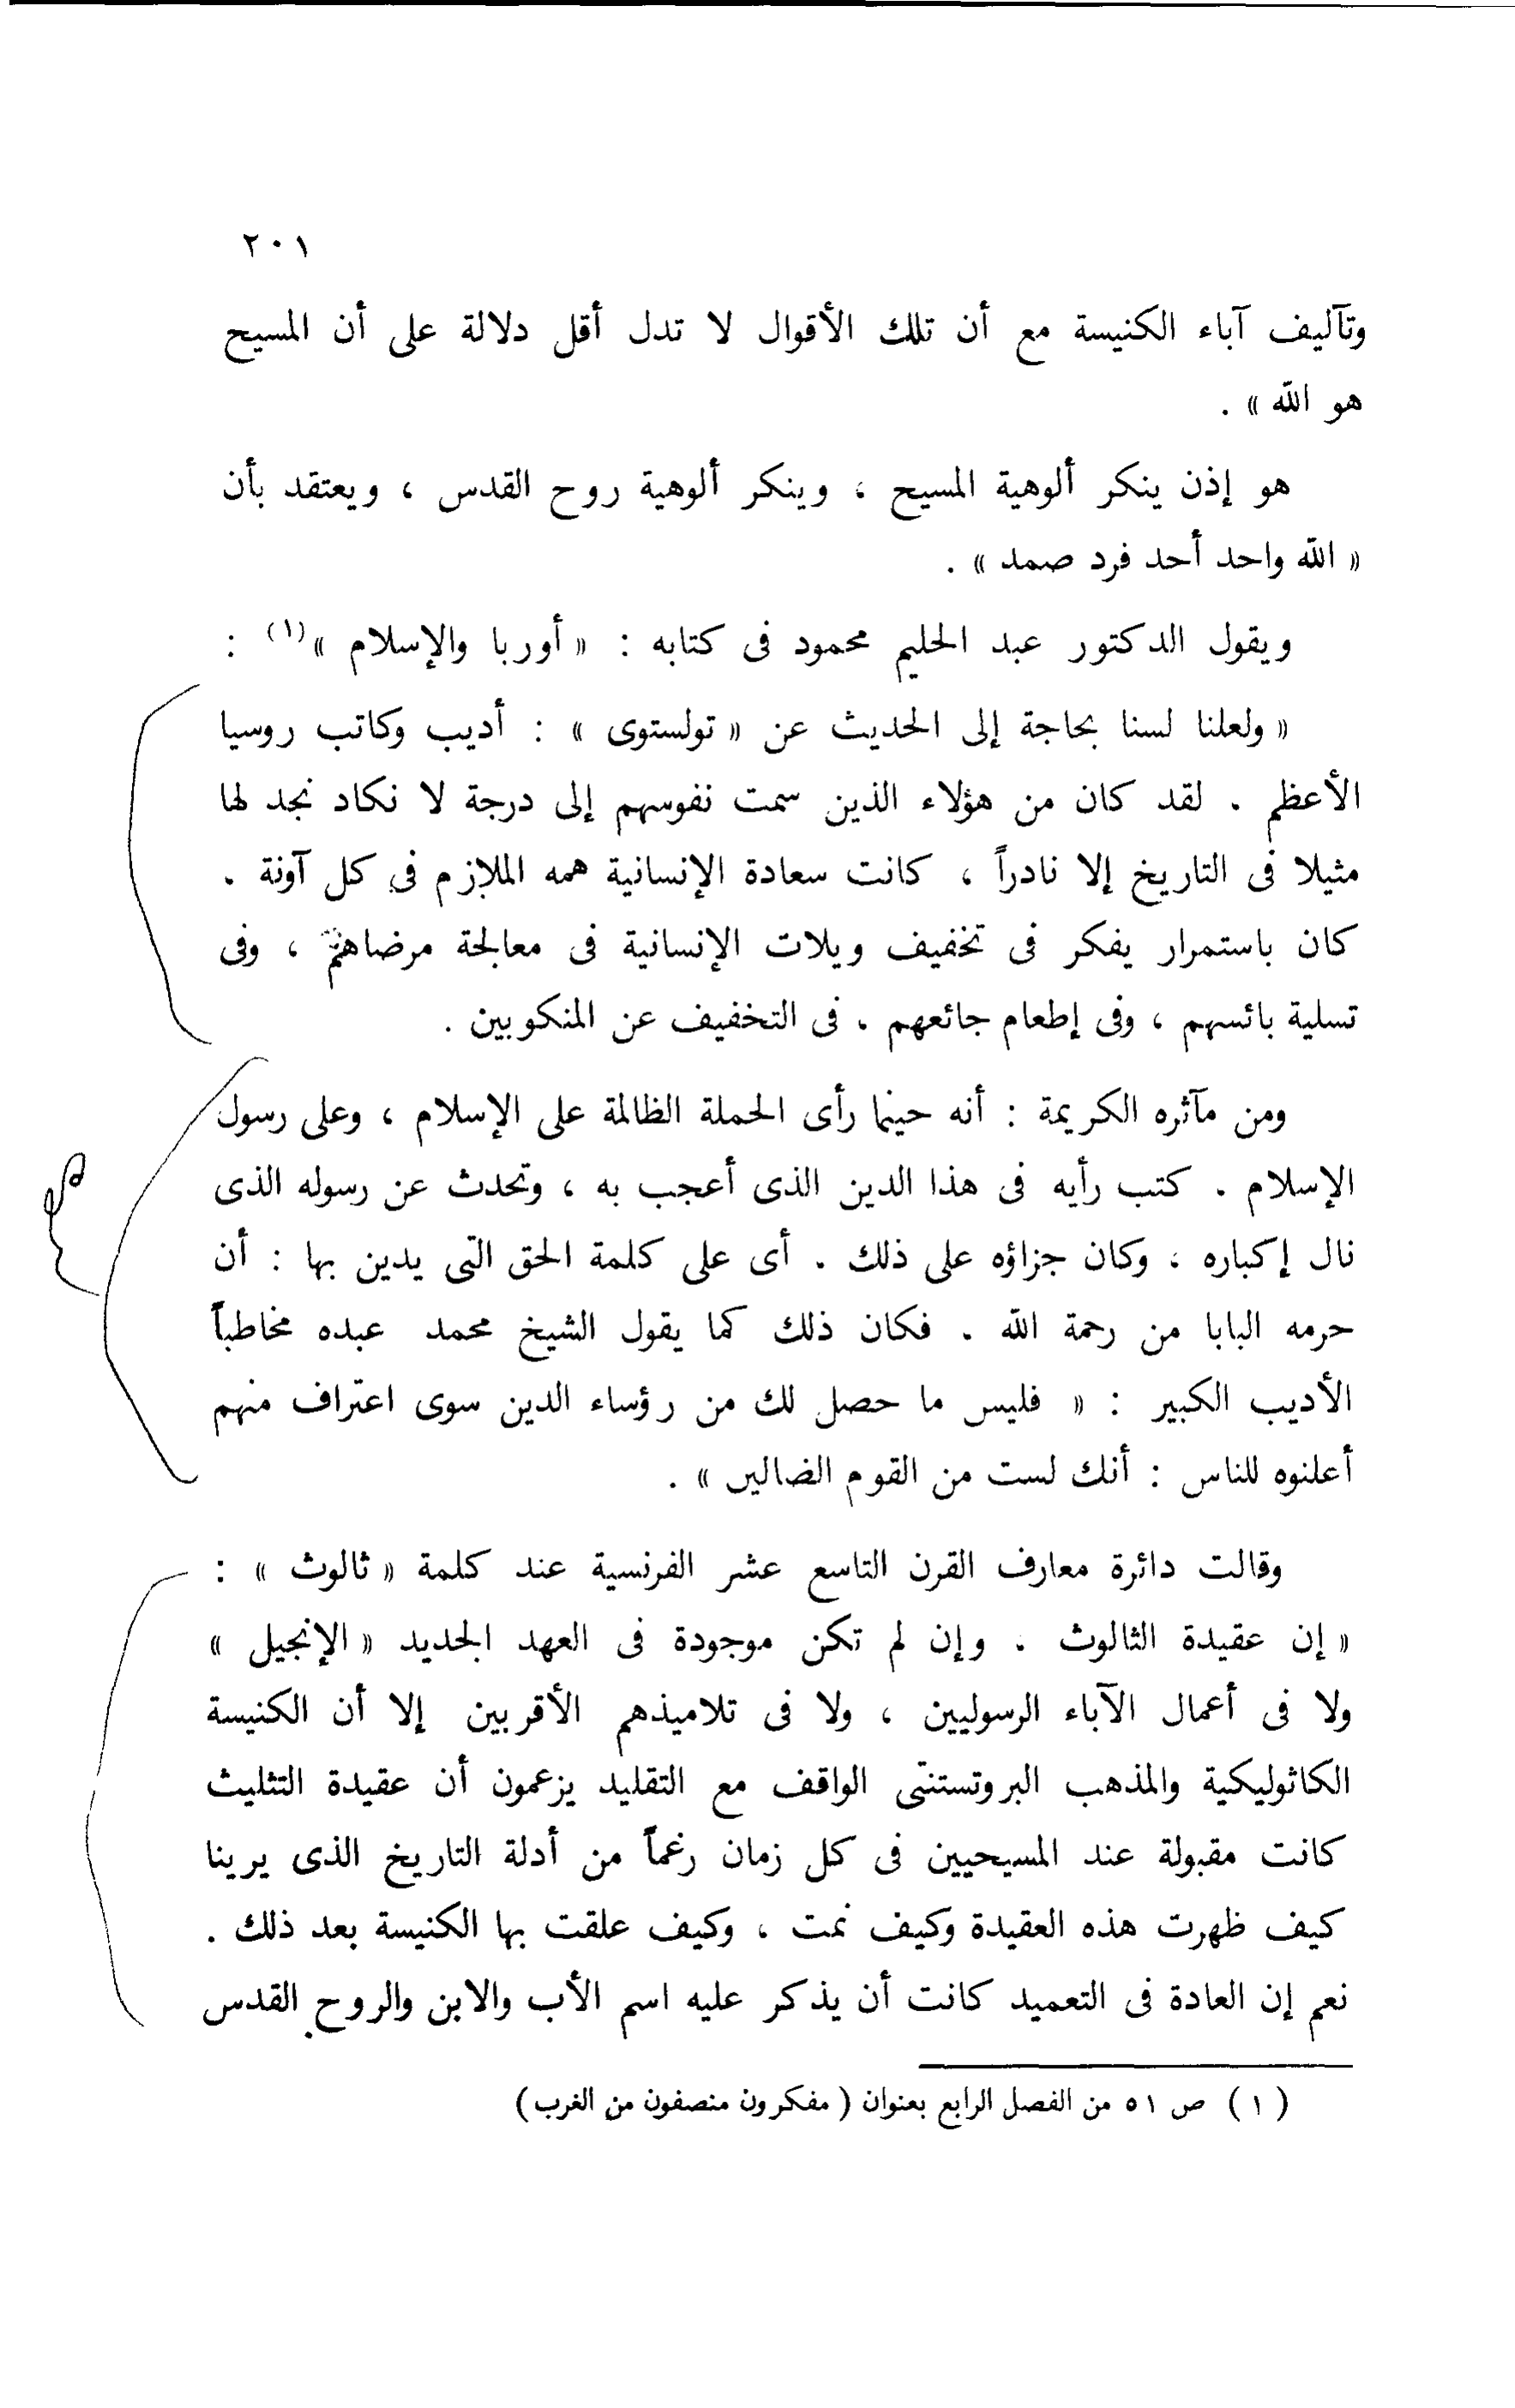 ٢٠١
وتآليف آباء الكنيسة مع أن تلك الأقوال لا تدل أقل دلالة على أن المسيح
هو الله » .
هو إذن ينكر ألوهية المسيح ، وينكر ألوهية روح القدس ، ويعتقد بأن
« الله واحد أحد فرد صمد » .
ويقول الدكتور عبد الحليم محمود فى كتابه : « أوربا والإسلام »(١) :
« ولعلنا لسنا بحاجة إلى الحديث عن « تولستوى » : أديب وكاتب روسيا
الأعظم . لقد كان من هؤلاء الذين سمت نفوسهم إلى درجة لا نكاد نجد لها
مثيلا فى التاريخ إلا نادراً ، كانت سعادة الإنسانية همه الملازم فى كل آونة .
كان باستمرار يفكر فى تخفيف ويلات الإنسانية فى معالجة مرضاهم ، وفى
تسلية بائسهم ، وفى إطعام جائعهم . فى التخفيف عن المنكوبين .
ومن مآثره الكريمة : أنه حينما رأى الحملة الظالمة على الإسلام ، وعلى رسول
الإسلام . كتب رأيه فى هذا الدين الذى أعجب به ، وتحدث عن رسوله الذى
نال إكباره ، وكان جزاؤه على ذلك . أى على كلمة الحق التى يدين بها : أن
حرمه البابا من رحمة الله . فكان ذلك كما يقول الشيخ محمد عبده مخاطباً
الأديب الكبير : « فليس ما حصل لك من رؤساء الدين سوى اعتراف منهم
أعلنوه للناس : أنك لست من القوم الضالين » .
وقالت دائرة معارف القرن التاسع عشر الفرنسية عند كلمة « ثالوث » :
« إن عقيدة الثالوث . وإن لم تكن موجودة فى العهد الجديد « الإنجيل »
ولا فى أعمال الآباء الرسوليين ، ولا فى تلاميذهم الأقربين إلا أن الكنيسة
الكاثوليكية والمذهب البروتستنتى الواقف مع التقليد يزعمون أن عقيدة التثليث
كانت مقبولة عند المسيحيين فى كل زمان رغماً من أدلة التاريخ الذى يرينا
كيف ظهرت هذه العقيدة وكيف نمت ، وكيف علقت بها الكنيسة بعد ذلك .
نعم إن العادة فى التعميد كانت أن يذكر عليه اسم الأب والابن والروح القدس
( ١ ) ص ٥١ من الفصل الرابع بعنوان ( مفكرون منصفون من الغرب )